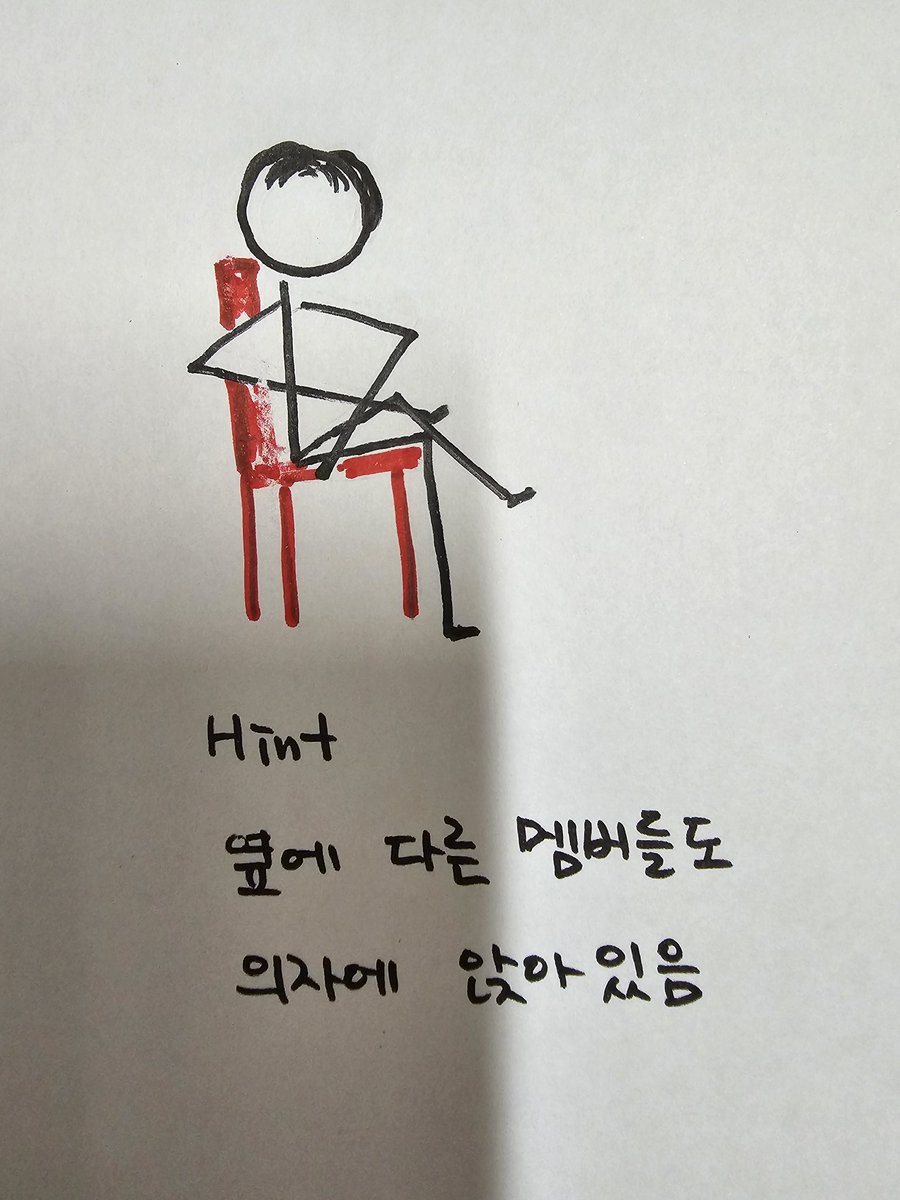 Hint
옆에 다른 멤버들도
의자에 앉아있음